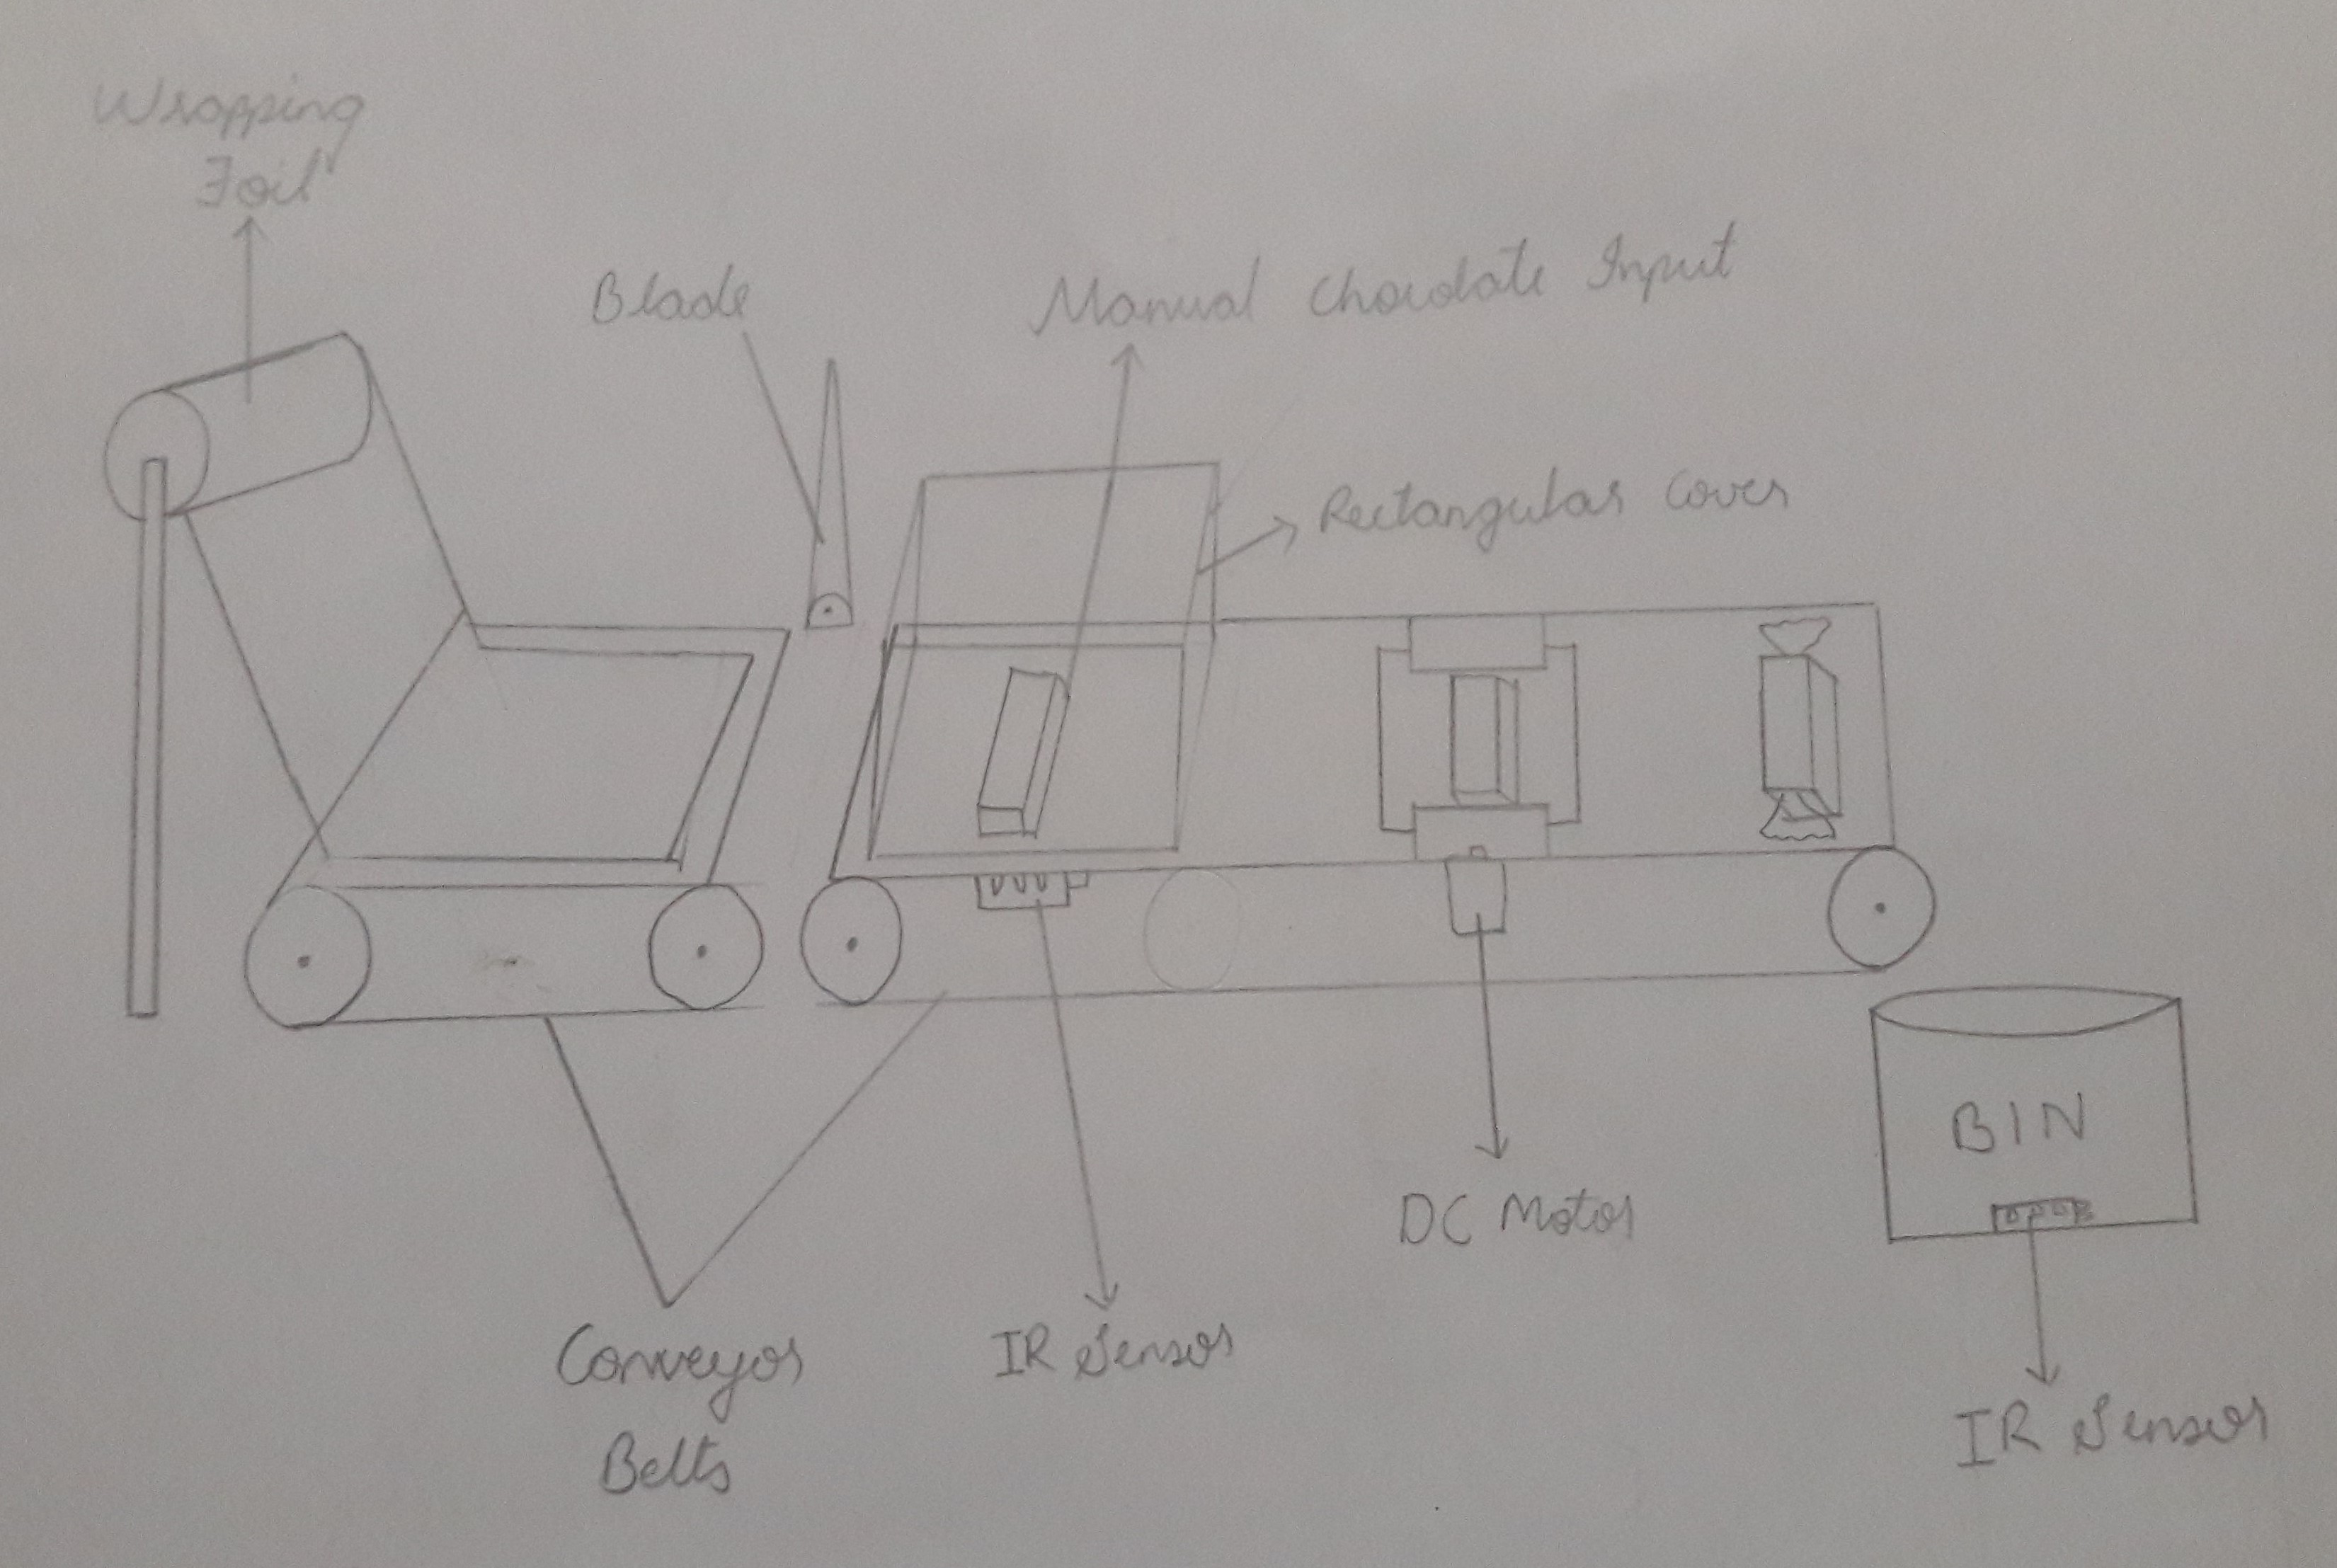 Wrapping
Foil
Blade
Manual Chocolate Input
Rectangular Cover
BIN
DC Motor
Conveyor
Belts
IR Sensor
IR Sensor